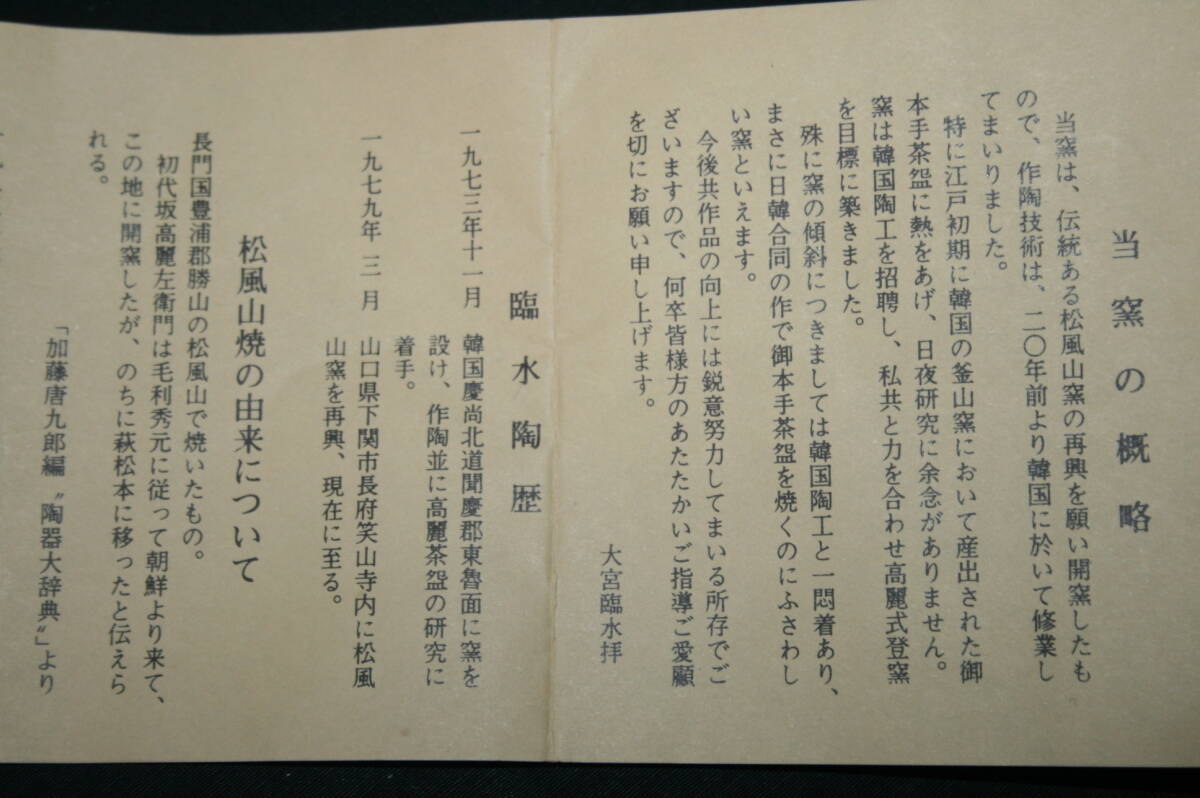 当窯の概略
当窯は、伝統ある松風山窯の再興を願い開窯したも
ので、作陶技術は、二〇年前より韓国に於いて修業し
てまいりました。
特に江戸初期に韓国の釜山窯において産出された御
本手茶盌に熱をあげ、日夜研究に余念がありません。
窯は韓国陶工を招聘し、私共と力を合わせ高麗式登窯
を目標に築きました。
殊に窯の傾斜につきましては韓国陶工と一悶着あり、
まさに日韓合同の作で御本手茶盌を焼くのにふさわし
い窯といえます。
今後共作品の向上には鋭意努力してまいる所存でご
ざいますので、何卒皆様方のあたたかいご指導ご愛顧
を切にお願い申し上げます。
大宮臨水拝
臨水陶歴
一九七三年十一月 韓国慶尚北道聞慶郡東魯面に窯を
設け、作陶並に高麗茶盌の研究に
着手。
一九七九年 三月 山口県下関市長府笑山寺内に松風
山窯を再興、現在に至る。
松風山焼の由来について
長門国豊浦郡勝山の松風山で焼いたもの。
初代坂高麗左衛門は毛利秀元に従って朝鮮より来て、
この地に開窯したが、のちに萩松本に移ったと伝えら
れる。
「加藤唐九郎編〝陶器大辞典〟」より